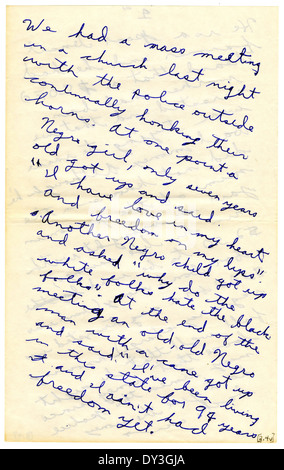 We had a mass meeting
in a church last night
with the police outside
continually honking their
horns. At one point a
Negro girl, only seven years
old got up and said.
"I have love in my heart
and freedom on my lips".
Another Negro child got up
and asked "why do the
white folks hate the black
folks". At the end of the
meeting an old, old Negro
man with a cane got up
and said, "I've been living
in this state for 94 years
and I ain't had
freedom yet.
alamy stock photo
DY3GJA
www.alamy.com